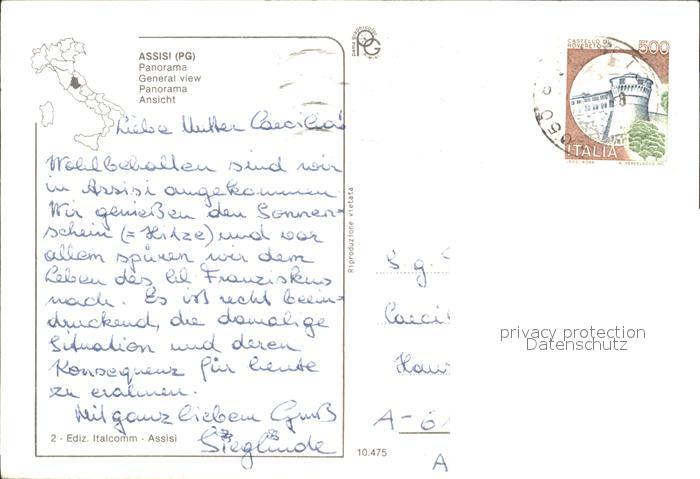 ASSISI (PG)
Panorama
General view
Panorama
Ansicht
Liebe Mutter Caecilia!
Wohlbehalten sind wir
in Assisi angekommen.
Wir genießen den Sonnen-
schein (= Hitze) und vor
allem spüren wir dem
Leben des hl. Franziskus
nach. Es ist recht beein-
druckend, die damalige
Situation und deren
Konsequenz für heute
zu erahnen.
Mit ganz lieben Gruß
Sieglinde
2 - Ediz. Italcomm - Assisi
10.475
Riproduzione vietata
CASTELLO DI
ROVERETO
500
ITALIA
S. g.
Caecil
Haus
A-61
A
privacy protection
Datenschutz